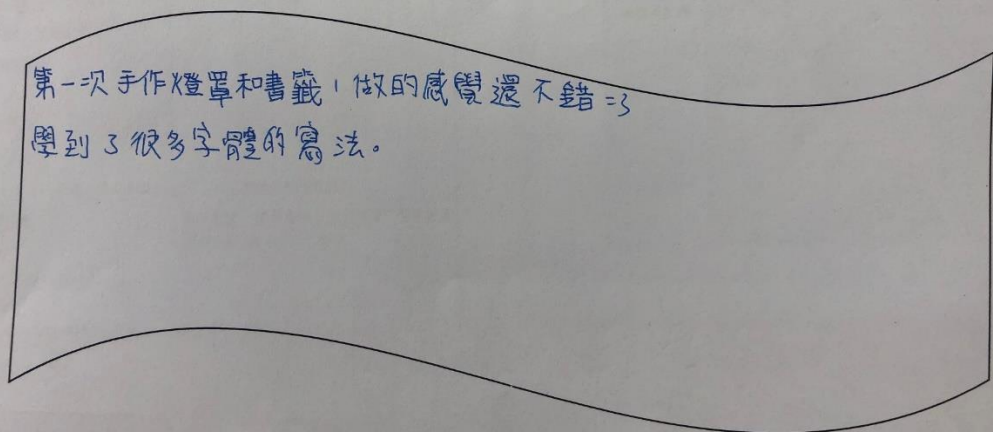 第一次手作燈罩和書籤，做的感覺還不錯=3
學到了很多字體的寫法。